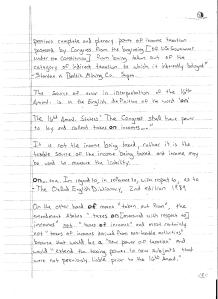 possess complete and plenary power of income taxation
possessed by Congress from the beginning [of US Government
under the constitution] from being taken out of the
category of indirect taxation to which it inherently belonged"
- Stanton v. Baltic Mining Co. Supra.
The source of error in interpretation of the 16th
Amnd. is in the English definition of the word "on"
The 16th Amnd. states "The Congress shall have power
to lay and collect taxes on incomes..."
It is not the income being taxed, rather it is the
source of the income being taxed and income may
be used to measure the liability.
On... In regard to, in reference to, with respect to, as to
- The Oxford English Dictionary, 2nd edition 1989
On the other hand of means "taken out from", the
amendment states "taxes on [meaning with respect to]
incomes" not "taxes of incomes" and most certainly
not "taxes of incomes derived from non-taxable activities"
because that would be a "new power of taxation" and
would "extend the taxing power to new subjects" that
were not previously liable prior to the 16th Amnd."